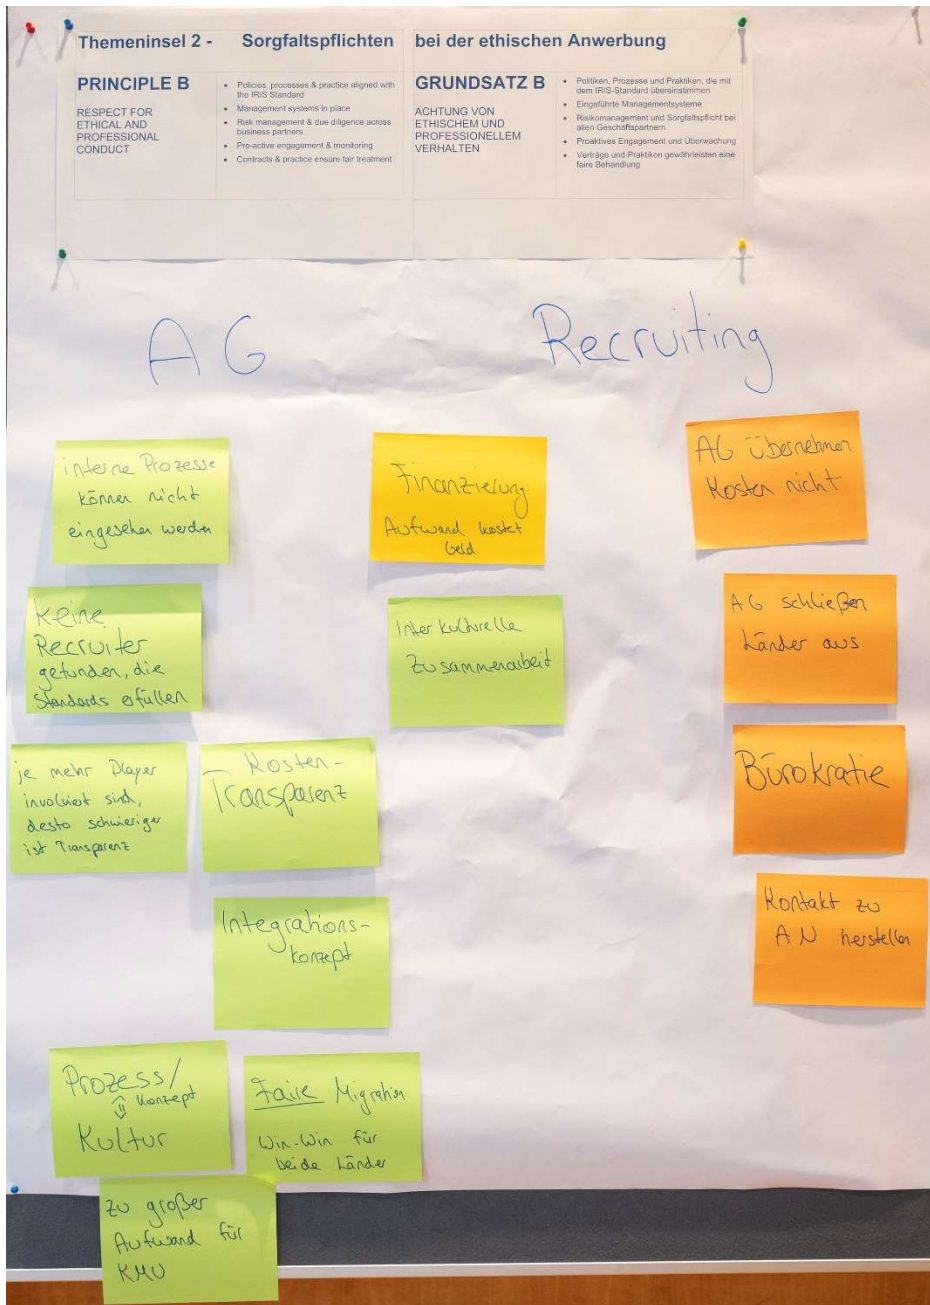 Themeninsel 2 - Sorgfaltspflichten bei der ethischen Anwerbung
PRINCIPLE B
RESPECT FOR
ETHICAL AND
PROFESSIONAL
CONDUCT
• Policies, processes & practice aligned with
the IRIS Standard
• Management systems in place
• Risk management & due diligence across
business partners
• Pro-active engagement & monitoring
• Contracts & practice ensure fair treatment
GRUNDSATZ B
ACHTUNG VON
ETHISCHEM UND
PROFESSIONELLEM
VERHALTEN
• Politiken, Prozesse und Praktiken, die mit
dem IRIS-Standard übereinstimmen
• Eingeführte Managementsysteme
• Risikomanagement und Sorgfaltspflicht bei
allen Geschäftspartnern
• Proaktives Engagement und Überwachung
• Verträge und Praktiken gewährleisten eine
faire Behandlung
AG
Recruiting
interne Prozesse
können nicht
eingesehen werden
Keine
Recruiter
gefunden, die
Standards erfüllen
je mehr Player
involviert sind,
desto schwieriger
ist Transparenz
Kosten-
Transparenz
Integrations-
konzept
Prozess/
⇕ Konzept
Kultur
Faire Migration
Win-Win für
beide Länder
zu großer
Aufwand für
KMU
Finanzierung
Aufwand kostet
Geld
Interkulturelle
Zusammenarbeit
AG übernehmen
Kosten nicht
AG schließen
Länder aus
Bürokratie
Kontakt zu
AN herstellen